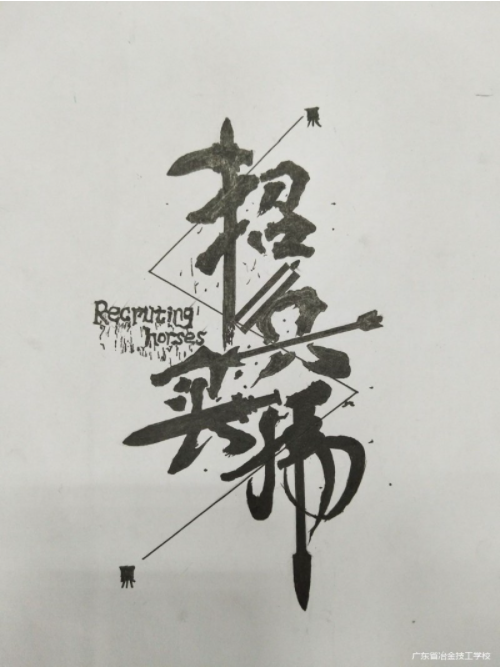 招
兵
Recruting
horses
买
马
广东省冶金技工学校